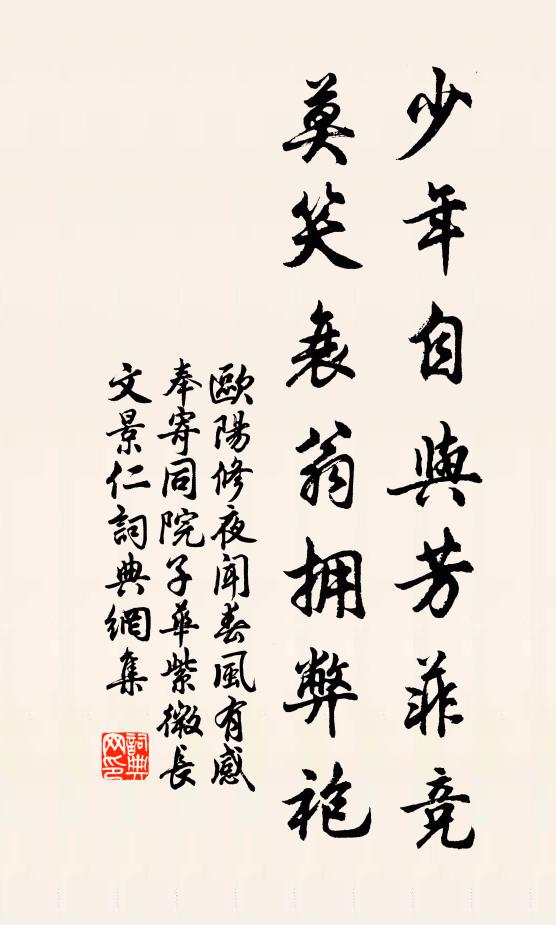 少年自與芳菲竞
莫笑衰翁拥弊袍
歐陽修夜闻春風有感
奉寄同院子華紫微長
文景仁詞典網集
詞典网印